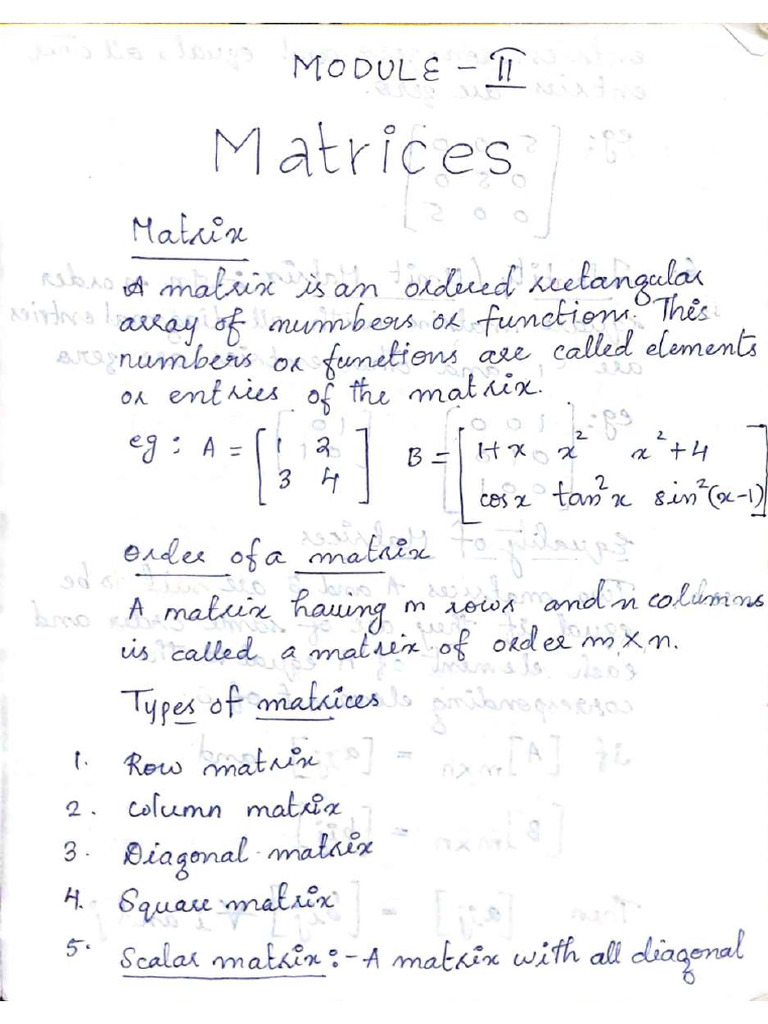 MODULE - II
Matrices
Matrix
A matrix is an ordered rectangular
array of numbers or functions. This
numbers or functions are called elements
or entries of the matrix.
eg : A = [1 2 B = [1+x x² x²+4
3 4] cosx tan²x sin²(x-1)]
Order of a matrix
A matrix having m rows and n columns
is called a matrix of order m × n.
Types of matrices
1. Row matrix
2. Column matrix
3. Diagonal matrix
4. Square matrix
5. Scalar matrix :- A matrix with all diagonal